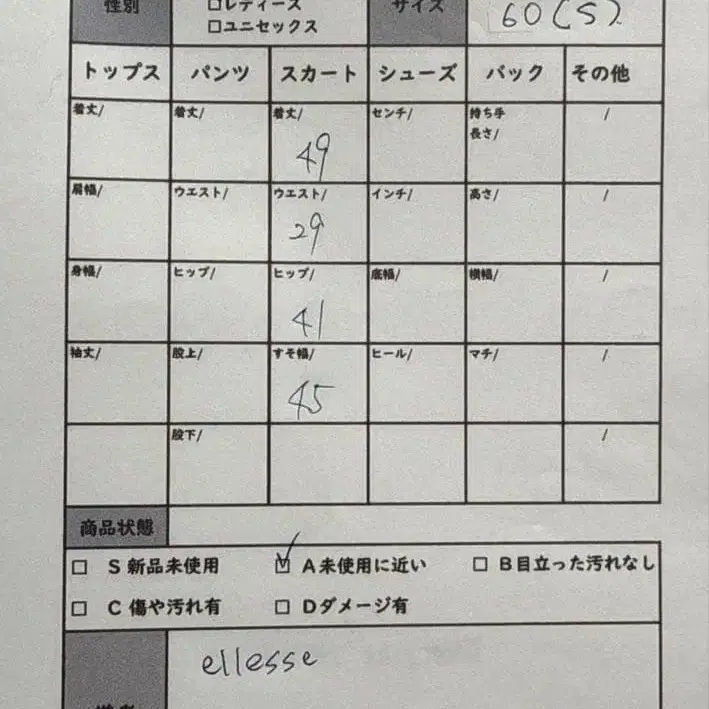 性別 □レディース サイズ 60(S)
□ユニセックス
トップス パンツ スカート シューズ バック その他
着丈/ 着丈/ 着丈/ センチ/ 持ち手 /
長さ/
49
肩幅/ ウエスト/ ウエスト/ インチ/ 高さ/ /
29
身幅/ ヒップ/ ヒップ/ 底幅/ 横幅/ /
41
袖丈/ 股上/ すそ幅/ ヒール/ マチ/ /
45
股下/ /
商品状態
□ S 新品未使用 ☑ A未使用に近い □ B目立った汚れなし
□ C 傷や汚れ有 □ Dダメージ有
ellesse